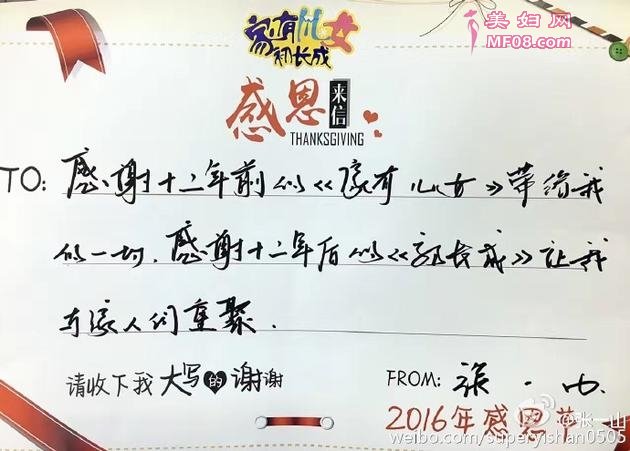 美妇网
MF08.com
家有儿女
初长成
感恩来信
THANKSGIVING
TO: 感谢十二年前的《家有儿女》带给我
的一切,感谢十二年后的《初长成》让我
与家人们重聚.
请收下我大写的谢谢
FROM: 张一山
2016年感恩节
@张一山
weibo.com/superyishan0505